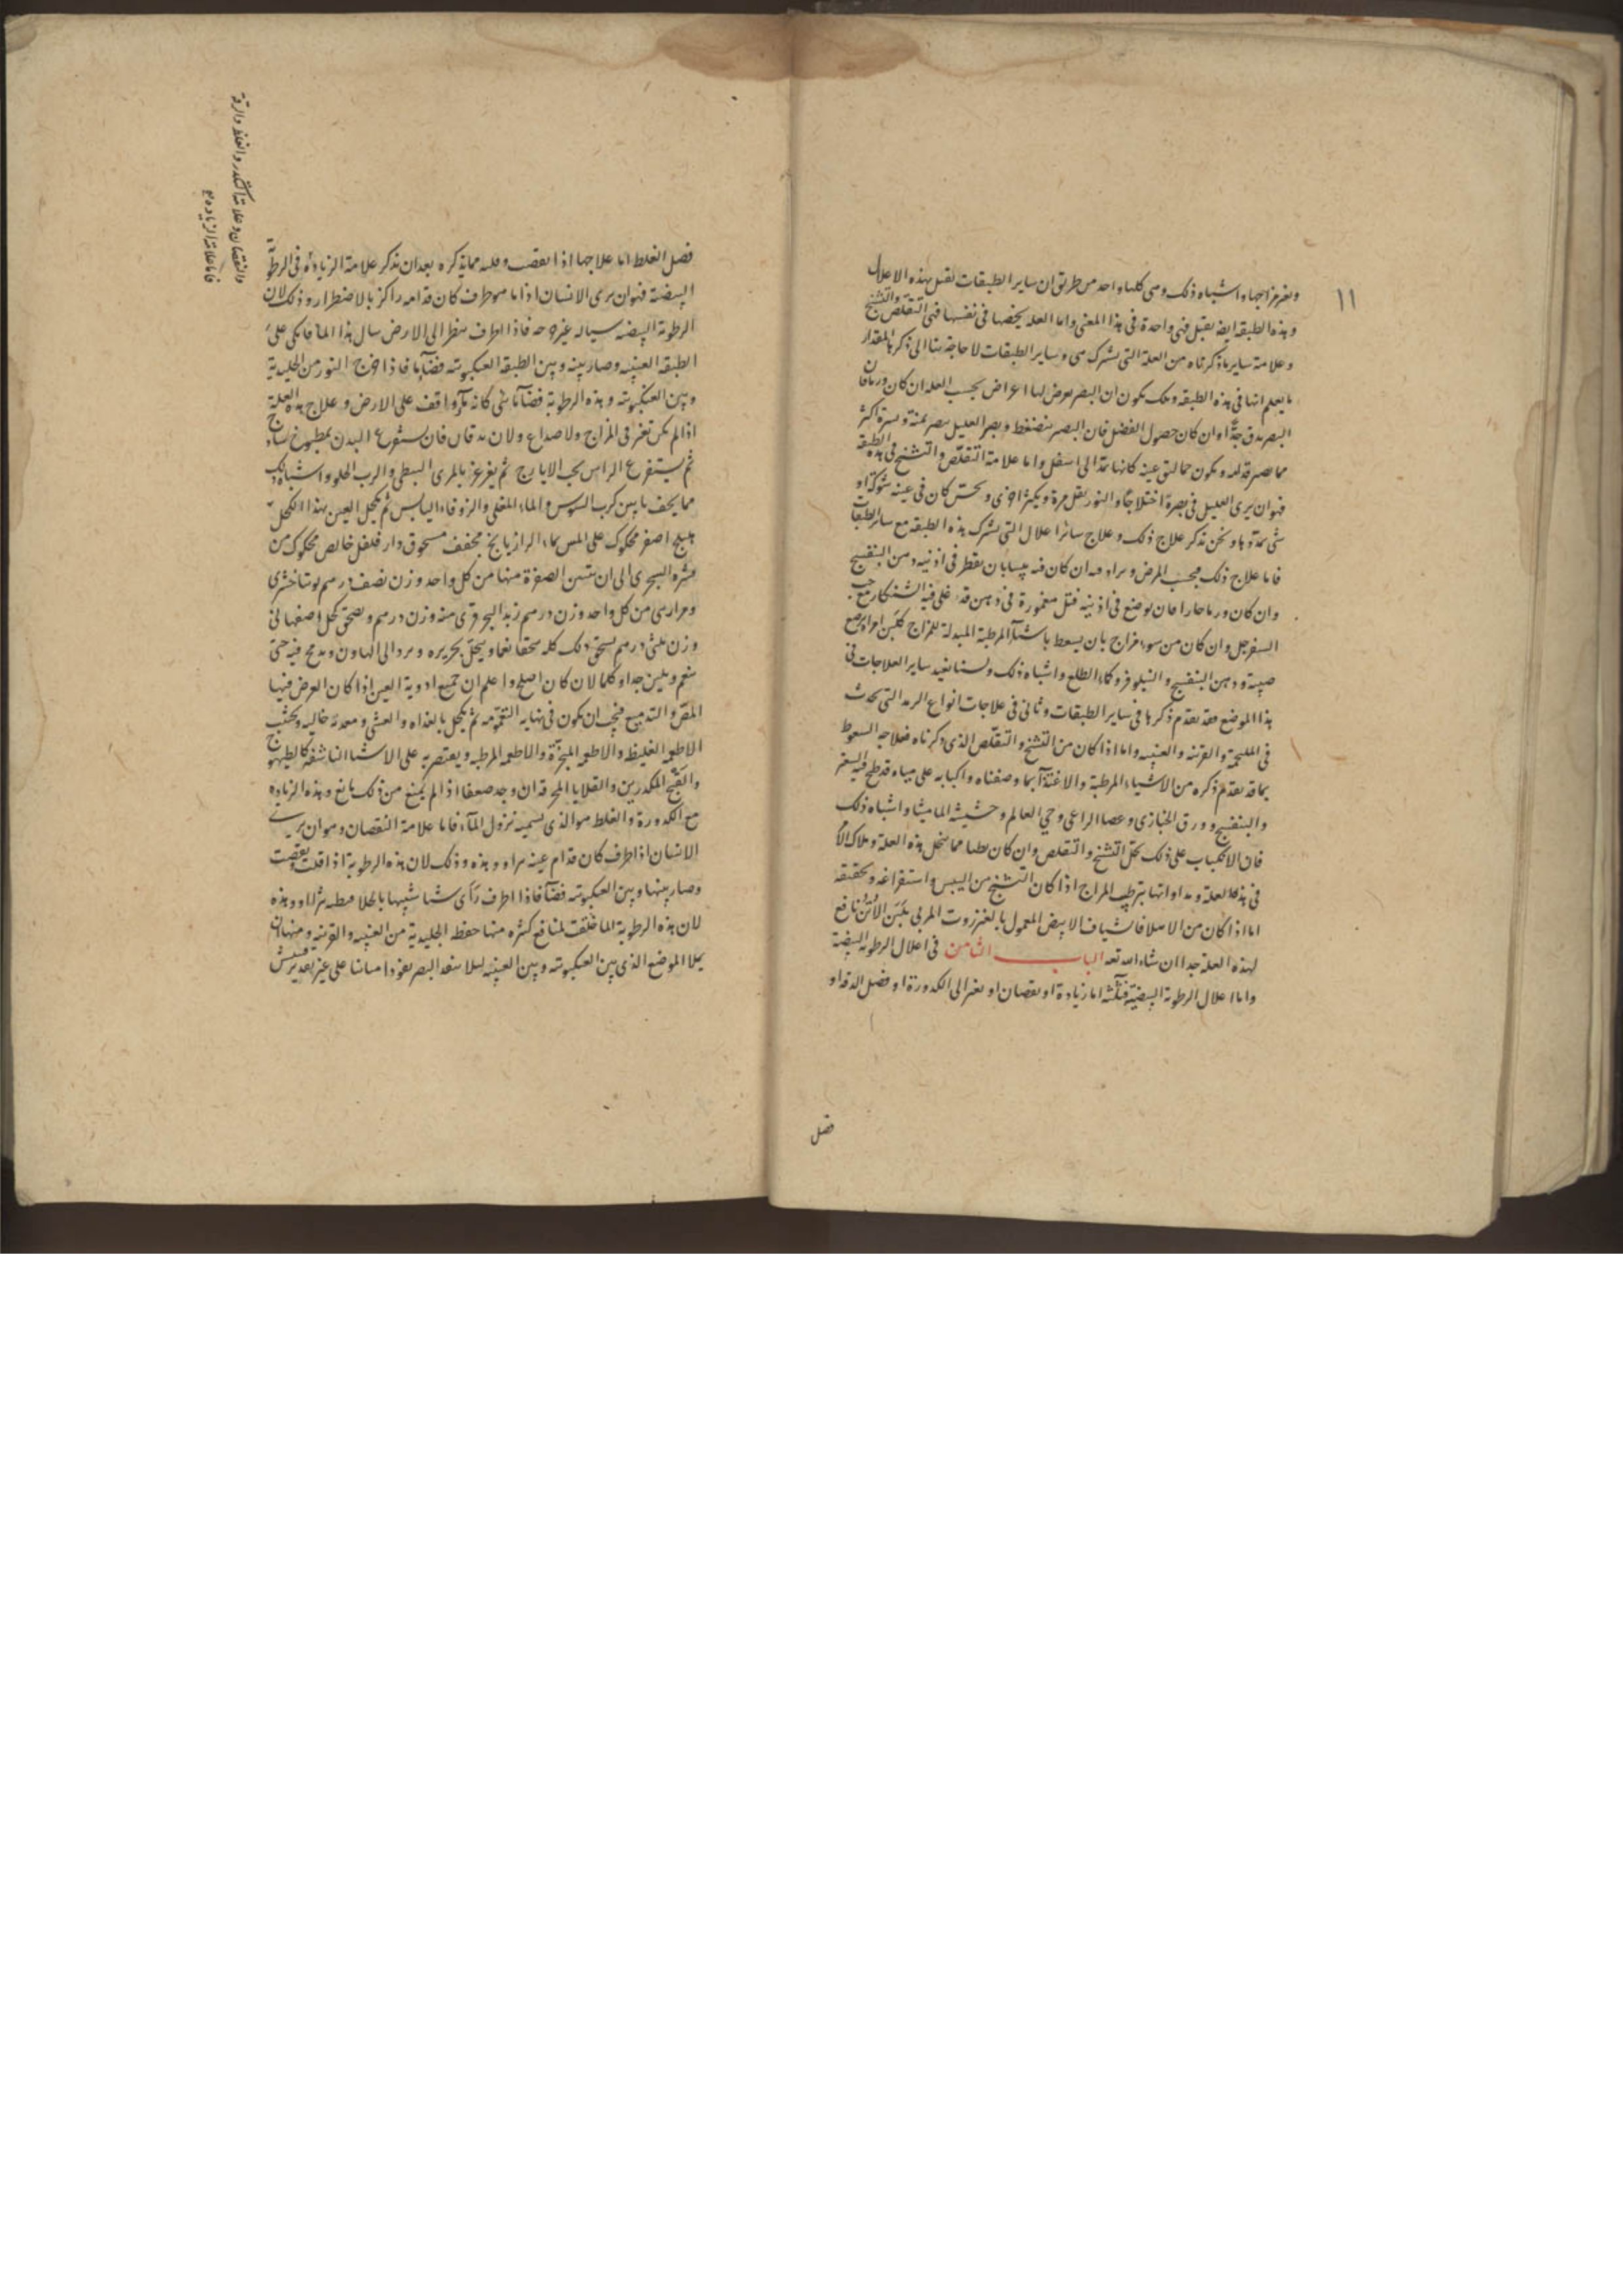 ١١
وتغير مزاجها واشباه ذلك وهي كلها واحد من طريق ان ساير الطبقات تقبل هذه الاعلال
وهذه الطبقة ايضا تقبل فهي واحدة في هذا المعنى واما العلة يخصها في نفسها فهي التقلص والتشنج
وعلامة ساير ما ذكرناه من العلة التي تشترك هي وساير الطبقات لا حاجة بنا الى ذكرها المقدار
ما يعلم انها في هذه الطبقة وذلك يكون ان البصر يعرض لها اعراض بحسب العلة ان كان ورما فان
البصر يدق جدًّا وان كان حصول الفضل فان البصر ينضغط ويصر العليل يبصر يمنة ويسرة اكثر
مما يبصر قدامه ويكون حمالتي عينه كانها تمد الى اسفل واما علامة التقلص والتشنج في هذه الطبقة
فهو ان يرى العليل في بصره اختلاجًا والنور يقل مرة ويكثر اخرى ويحسّ كان في عينه شوكة او
شي يمدّها ونحن نذكر علاج ذلك وعلاج سائر اعلال التي تشرك هذه الطبقة مع سائر الطبقات
فاما علاج ذلك فبحسب المرض ومراده ان كان فيه يبسا بان يقطر في اذنيه دهن البنفسج
وان كان ورما حارا فان يوضع في اذنيه فتل مغمورة في دهن قد غلي فيه الشنكار مع حب
السفرجل وان كان من سوء مزاج بان يسعط باشيآ المرطبة المبدلة للمزاج كلبن امراة مرضع
صبية ودهن البنفسج والنيلوفر وكماء الطلع واشباه ذلك ولسنا نعيد ساير العلاجات في
هذا الموضع فقد تقدم ذكرها في ساير الطبقات وثاني في علاجات انواع الرمد التي تحدث
في الملتحمة والقرنية والعنبية واما اذا كان من التشنج والتقلص الذي ذكرناه فعلاجه السعوط
بما قد تقدم ذكره من الاشياء المرطبة والاغذية بما وصفناه واكبابه على مياه قد طبخ فيه الشعير
والبنفسج وورق الخبازى وعصا الراعي وحي العالم وحشيشة المامیثا واشباه ذلك
فان الانكباب على ذلك يحلّ التشنج والتقلص وان كان بطيا مما ينحل هذه العلة وملاك الامر
في هذه العلة ومداواتها بترطيب المزاج اذا كان التشنج من اليبس واستفراغه وتحقيقه
اما اذا كان من الامتلا فاشياف الابيض المعمول بالعنزروت المربي بلبن الاتن نافع
لهذه العلة جدا ان شاء الله تعه الباب الثامن في اعلال الرطوبة البيضية
واما اعلال الرطوبة البيضية فثلثة اما زيادة او نقصان او تغير الى الكدورة او فضل الدقة او
فضل
فضل الغلظ اما علاجها اذا نقصت وقلت مما يذكره بعد ان نذكر علامة الزيادة في الرطوبة
البيضية فهو ان يرى الانسان اذا ما هو طرف كان قدامه راكز بالاضطرار وذلك لان
الرطوبة البيضية سيالة غير فاذا اطرف ينظر الى الارض سال هذا الما فاتكى على
الطبقة العنبية وصار بينه وبين الطبقة العنكبوتية فضآما فاذا خرج النور من الجليدية
وبين العنكبوتية وهذه الرطوبة فضآ ما شي كانه مآ واقف على الارض وعلاج هذه العلة
اذا لم يكن تغير في المزاج ولا صداع ولا ان فان يستفرغ البدن بمطبوخ
ثم يستفرغ الراس بحب الايارج ثم يغرغر بالمرى النبطي والرب الحلو واشباه ذلك
مما يجفف ما بين كرب السوس والماء المغلي والزوفاء اليابس ثم يكحل العين بهذا الكحل
هليلج اصفر محكوك على المسن بماء الرازيانج مجفف مسحوق دار فلفل خالص محكوك من
قشره البحرى الى ان تتبين الصفرة منها من كل واحد وزن نصف درهم توتيا خشرى
ومرارسى من كل واحد وزن درهم زبد البحر قرى منه وزن درهم ويصحق كحل اصفهاني
وزن ثلثي درهم يسحق ذلك كله سحقا ناعما وينخل بحريره ويرد الى الهاون ويدعج فيه حتى
ينعم ويلين جدا وكلما لان كان اصلح واعلم ان جميع ادوية العين اذا كان الغرض فيها
المقص والتدميع فيجب ان يكون في نهايه النعومه ثم يكحل بالغداه والعشي ومعدة خاليه ويجتنب
الاطعمه الغليظه والاطعمه المبخّرة والاطعمة المرطبه ويقتصر به على الاشيا الناشفه كالطيهوج
والقبج المكدرين والقلايا المحرقه ان وجد ضعفا اذا لم يمنع من ذلك مانع وهذه الزيادة
مع الكدورة والغلظ هو الذي يسميه نزول المآء فاما علامة النقصان وهو ان يرى
الانسان اذا طرف كان قدام عينه مراه وهذه وذلك لان هذه الرطوبة اذا قلت ونقصت
وصار بينها وبين العنكبوتيه فضآ فاذا اطرف راى شيا شبيها بالخلا وهذه
لان هذه الرطوبة انما خلقت لمنافع كثيره منها حفظ الجليدية من العنبيه والقرنيه ومنها ان
يملا الموضع الذي بين العنكبوتيه وبين العنبيه ليلا ينفذ البصر نفوذا مباينا على غير تقدير فيتشتت
والنقصان وعلامة الكدر والغلظ والرقة
فاما علامة الزيادة